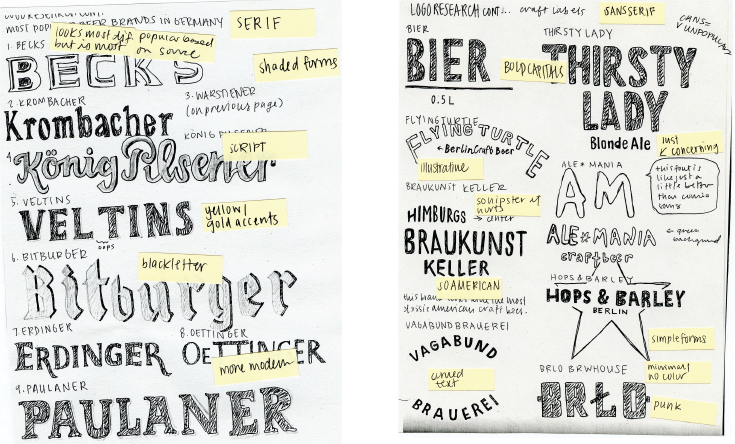 LOGO RESEARCH CONT.
MOST BEER BRANDS IN GERMANY
SERIF
looks most dif. popular based
but is most on source
1. BECKS
BECKS
shaded forms
2. KROMBACHER
3. WARSTIENER
(on previous page)
Krombacher
KÖNIG PILSENER
SCRIPT
4.
König Pilsener
5. VELTINS
VELTINS
yellow/
gold accents
oops
6. BITBURGER
blackletter
Bitburger
7. ERDINGER
8. OETTINGER
ERDINGER
OETTINGER
more modern
9. PAULANER
PAULANER
LOGO RESEARCH CONT... craft labels
SANS SERIF
BIER
BIER
0.5L
THIRSTY LADY
BOLD CAPITALS
THIRSTY
LADY
Blonde Ale
just
concerning
FLYING TURTLE
FLYING TURTLE
BerlinCraft Beer
illustrative
BRAUKUNST KELLER
HIMBURGS
center
BRAUKUNST
KELLER
SO AMERICAN
american craft beers.
VAGABUND BRAUEREI
VAGABUND
curved
text
BRAUEREI
ALE * MANIA
AM
this font is
like just a
little better
than comic
sans
ALE*MANIA
craftbeer
green
background
HOPS & BARLEY
HOPS & BARLEY
BERLIN
simple forms
BRLO BRWHOUSE
minimal
no color
BRLO
punk